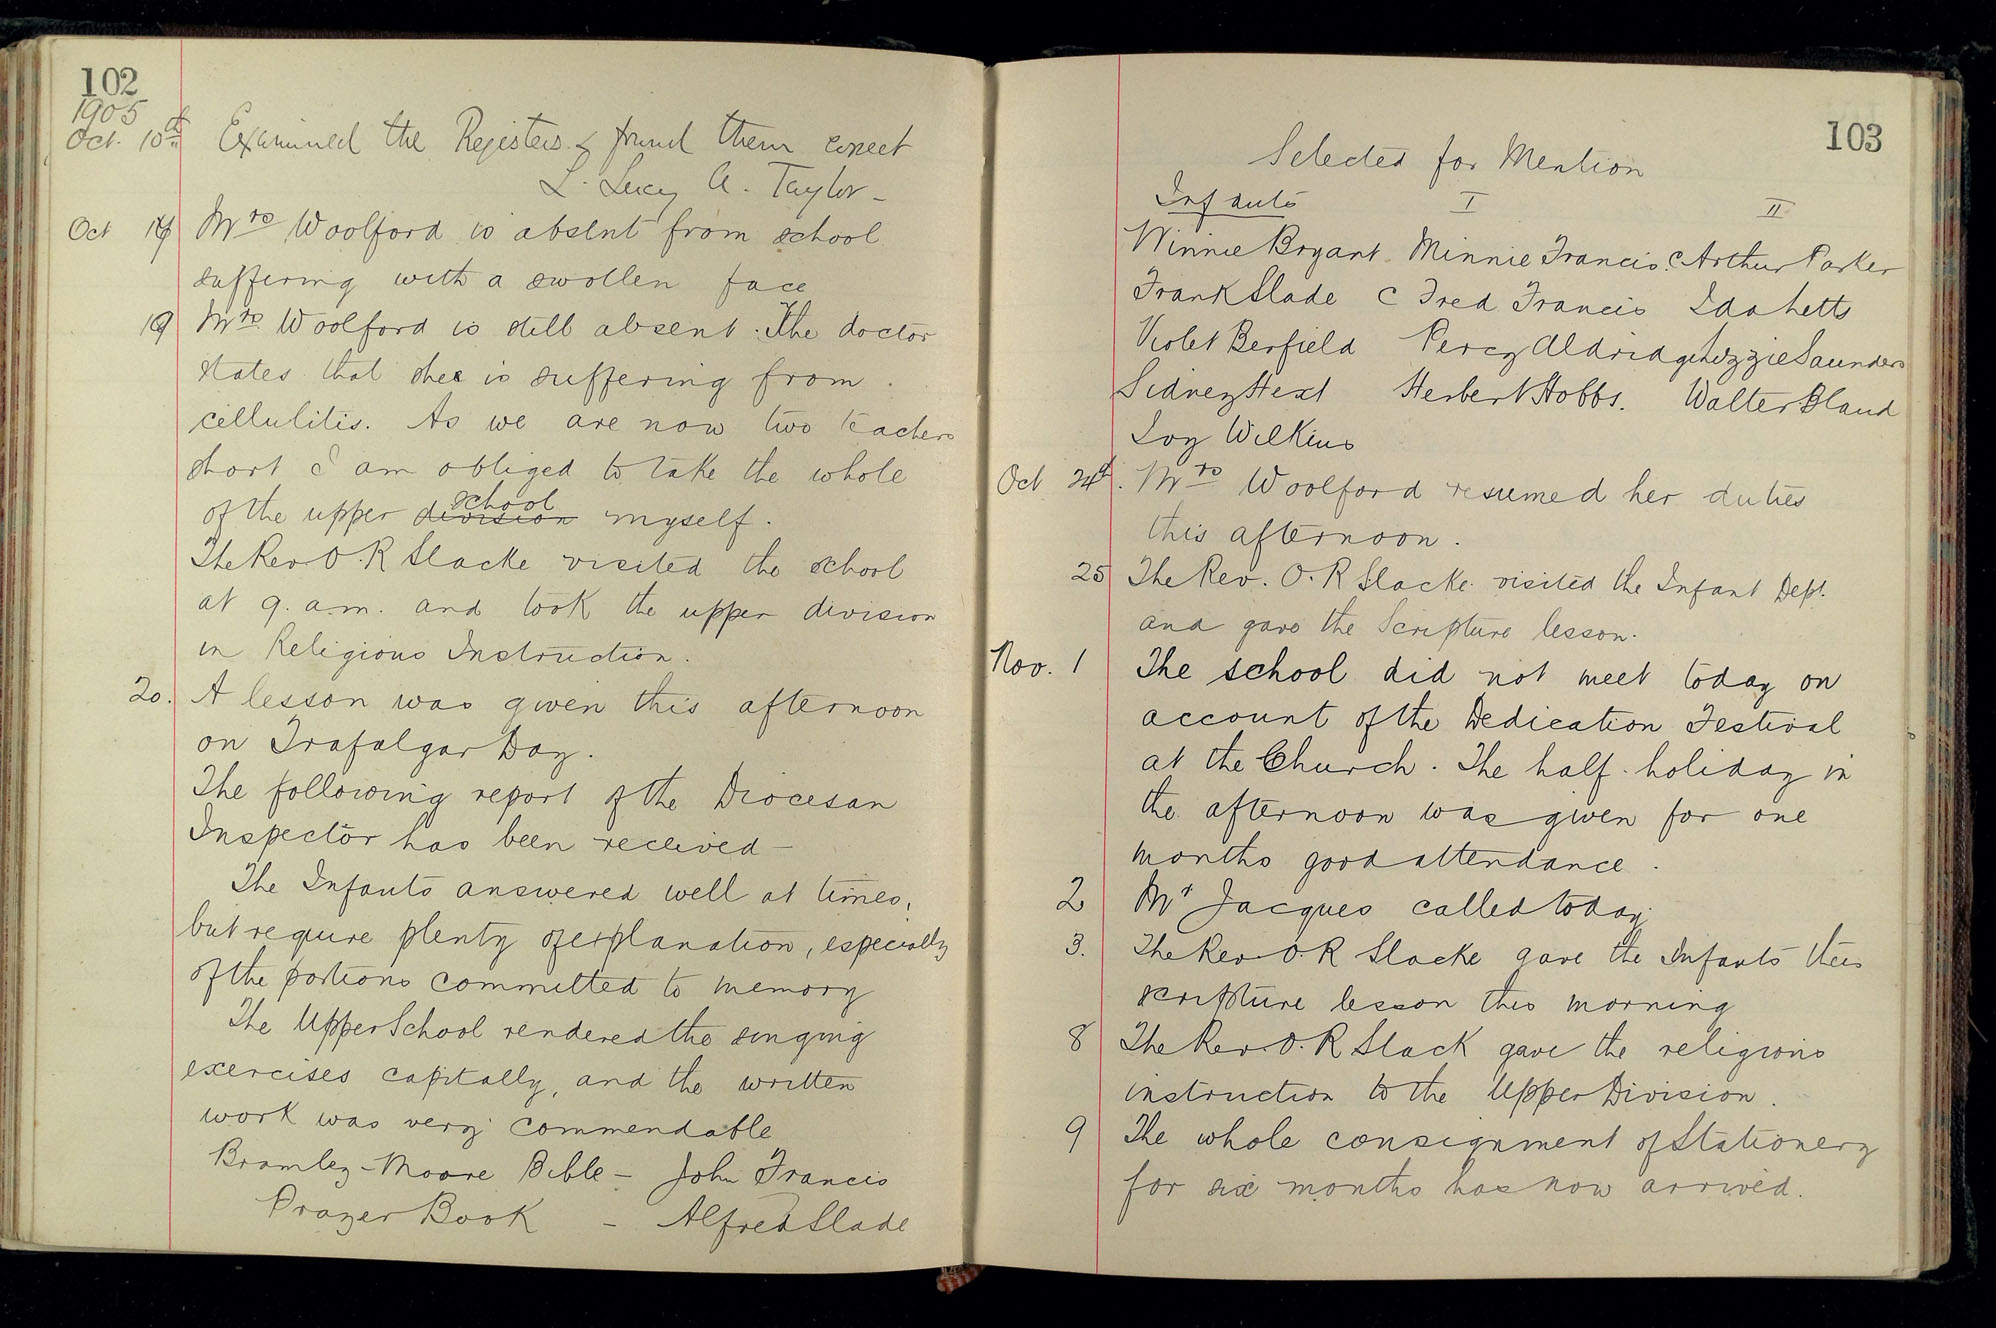 102
1905
Oct. 10th Examined the Registers & found them correct
L. Lucy A. Taylor –
Oct Mrs Woolford is absent from school
suffering with a swollen face
19 Mrs Woolford is still absent. The doctor
states that she is suffering from
cellulitis. As we are now two teachers
short I am obliged to take the whole
of the upper division school myself.
The Rev. O. R Slacke visited the school
at 9. a.m. and took the upper division
in Religious Instruction.
20. A lesson was given this afternoon
on Trafalgar Day.
The following report of the Diocesan
Inspector has been received –
The Infants answered well at times,
but require plenty of explanation, especially
of the portions committed to memory
The Upper School rendered the singing
exercises capitally, and the written
work was very commendable
Bramley-Moore Bible – John Francis
Prayer Book – Alfred Slade
103
Selected for Mention
Infants I II
Winnie Bryant Minnie Francis Arthur Parker
Frank Slade Fred Francis Ida
Violet Berfield Percy Aldridge Lizzie Saunders
Sidney Hext Herbert Hobbs. Walter Bland
Wilkins
Oct 24th. Mrs Woolford resumed her duties
this afternoon.
25 The Rev. O. R Slacke visited the Infant Dept.
and gave the Scripture lesson.
Nov. 1 The school did not meet today on
account of the Dedication Festival
at the Church. The half-holiday in
the afternoon was given for one
months good attendance.
2 Mr Jacques called today
3. The Rev. O. R Slacke gave the Infants their
scripture lesson this morning
8 The Rev. O. R Slack gave the religious
instruction to the Upper Division.
9 The whole consignment of Stationery
for six months has now arrived.